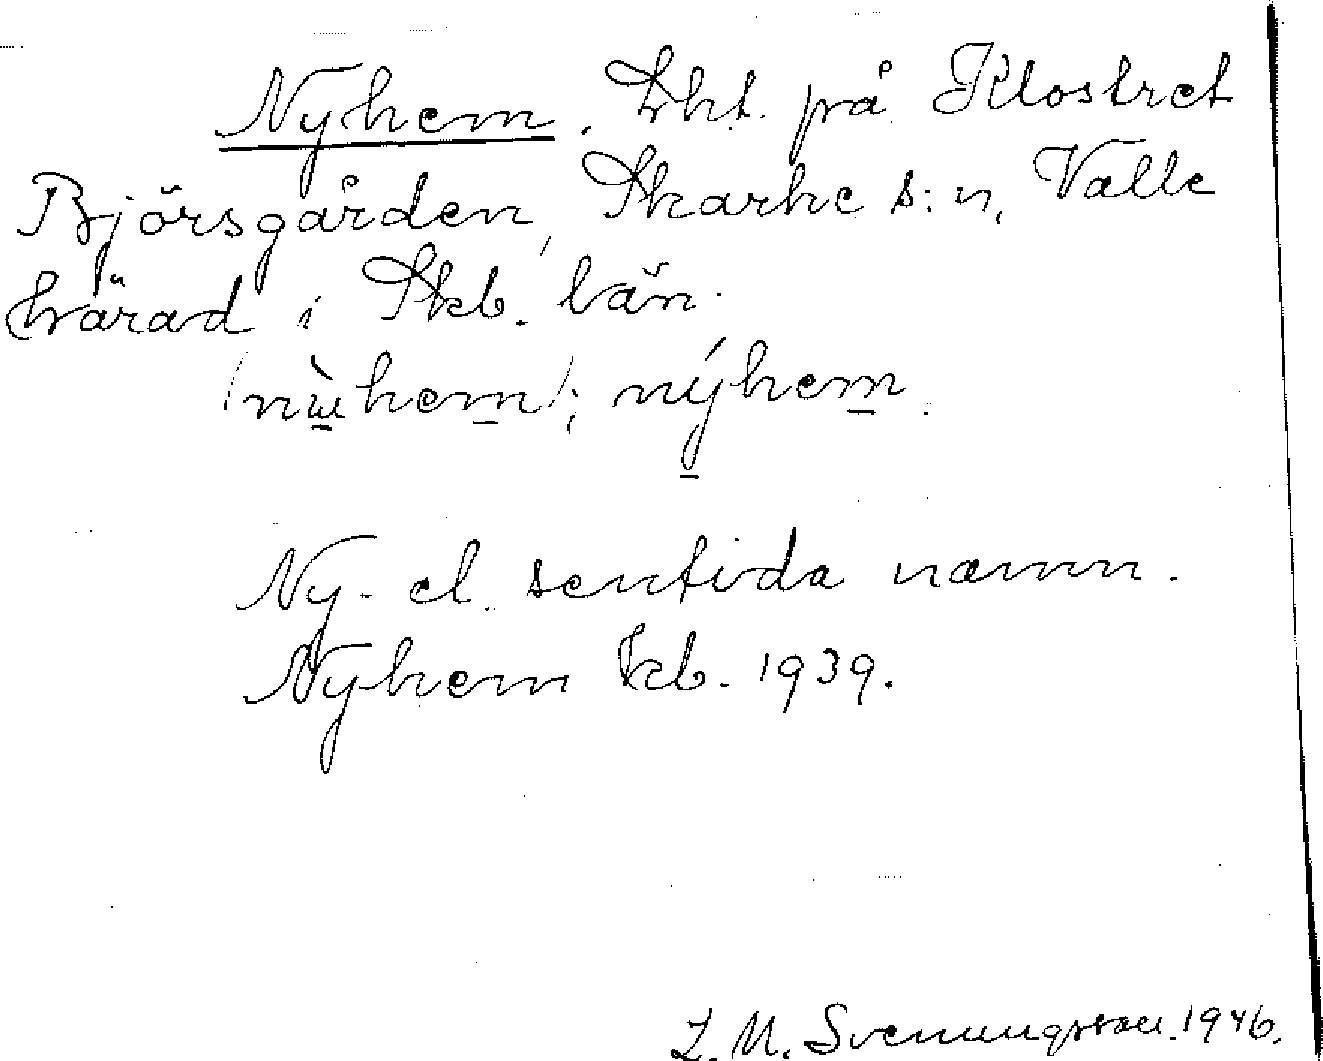 Nyhem. Lht. på Klostret
Björsgården, Skarke s:n, Valle
härad i Skb. län.
/nẁhem/; nýhem.
Ny- el. sentida namn.
Nyhem kb. 1939.
L. M. Svenungsson. 1946.